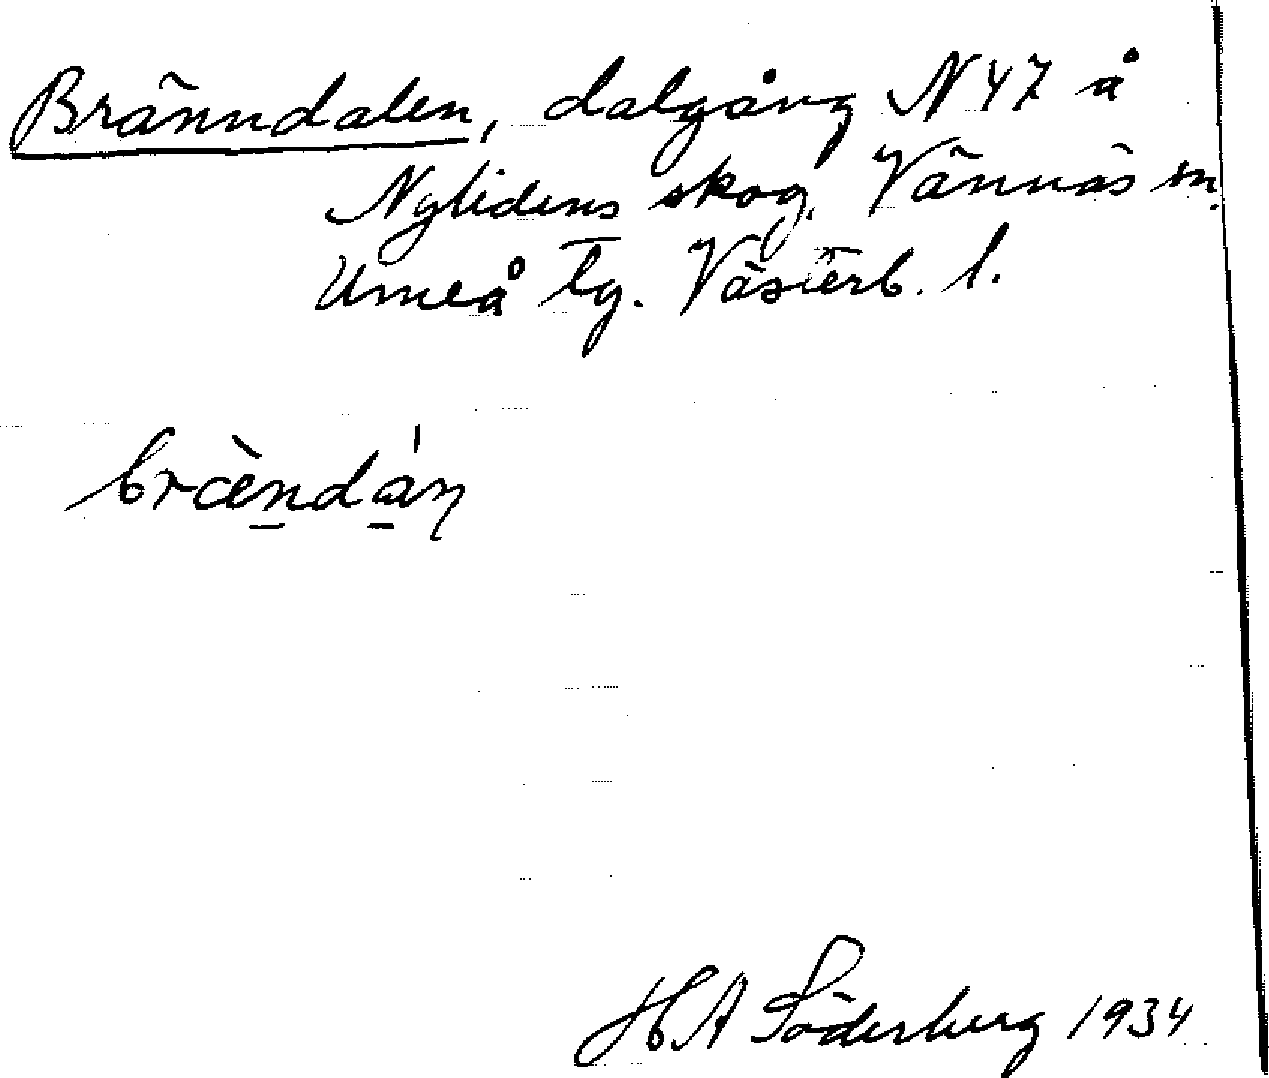 Bränndalen, dalgång N 47 å
Nylidens skog, Vännäs sn,
Umeå tg. Västerb. l.
bræ̀ndáṇ
H A Söderberg 1934